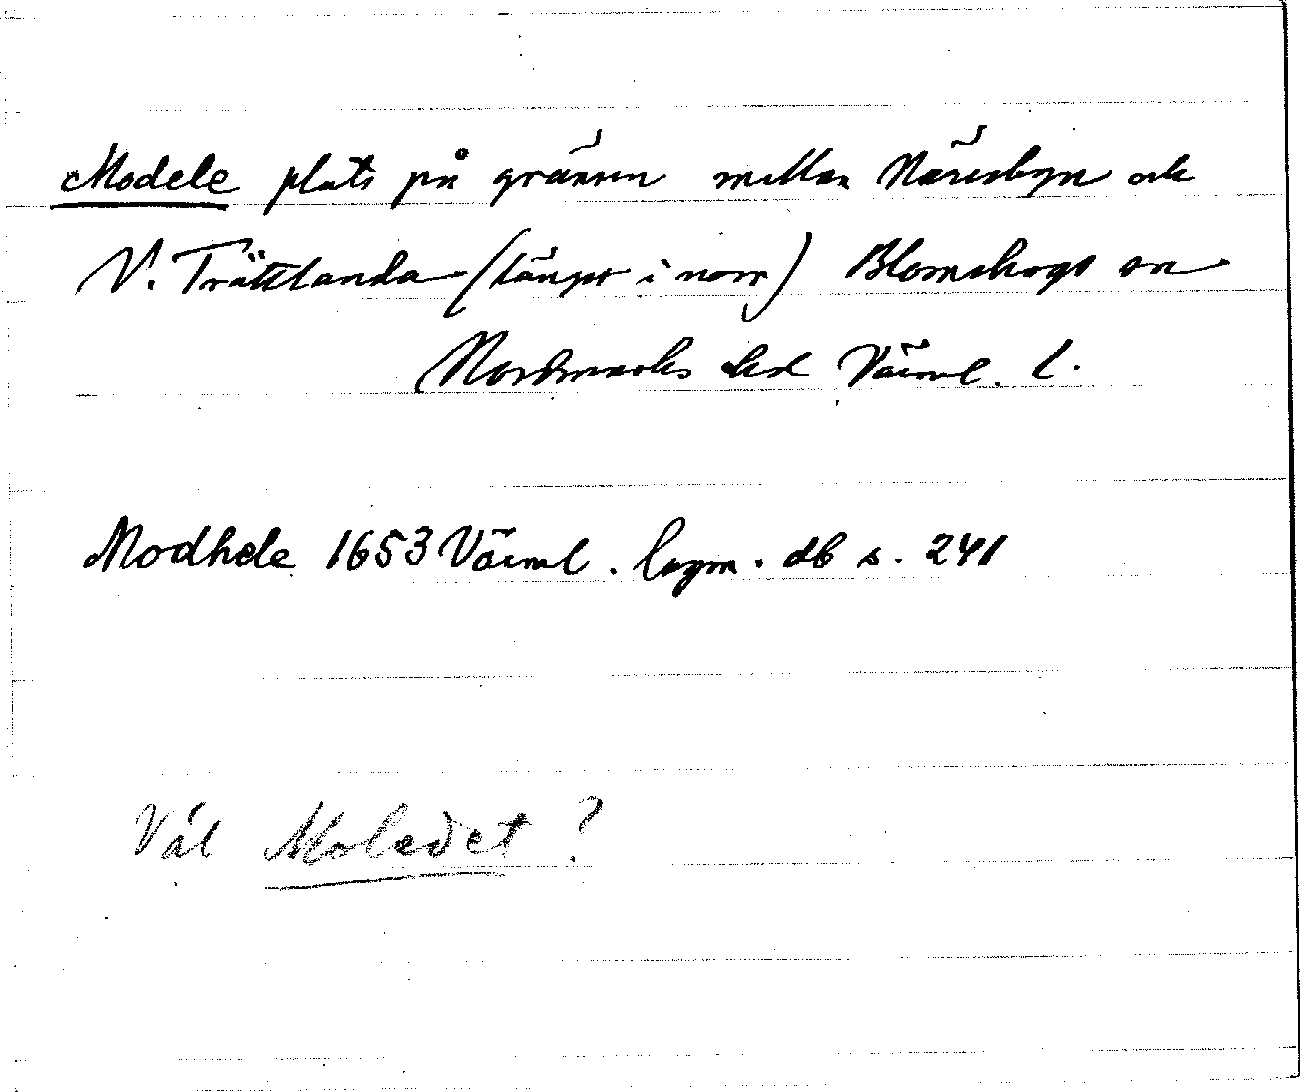 Modele plats på gränsen mellan Näresbyn och
V. Trättlanda (längst i norr) Blomskogs sn
Nordmarks hd Värml. l.
Modhele 1653 Värml. lagm. db s. 241
Väl Moledet?